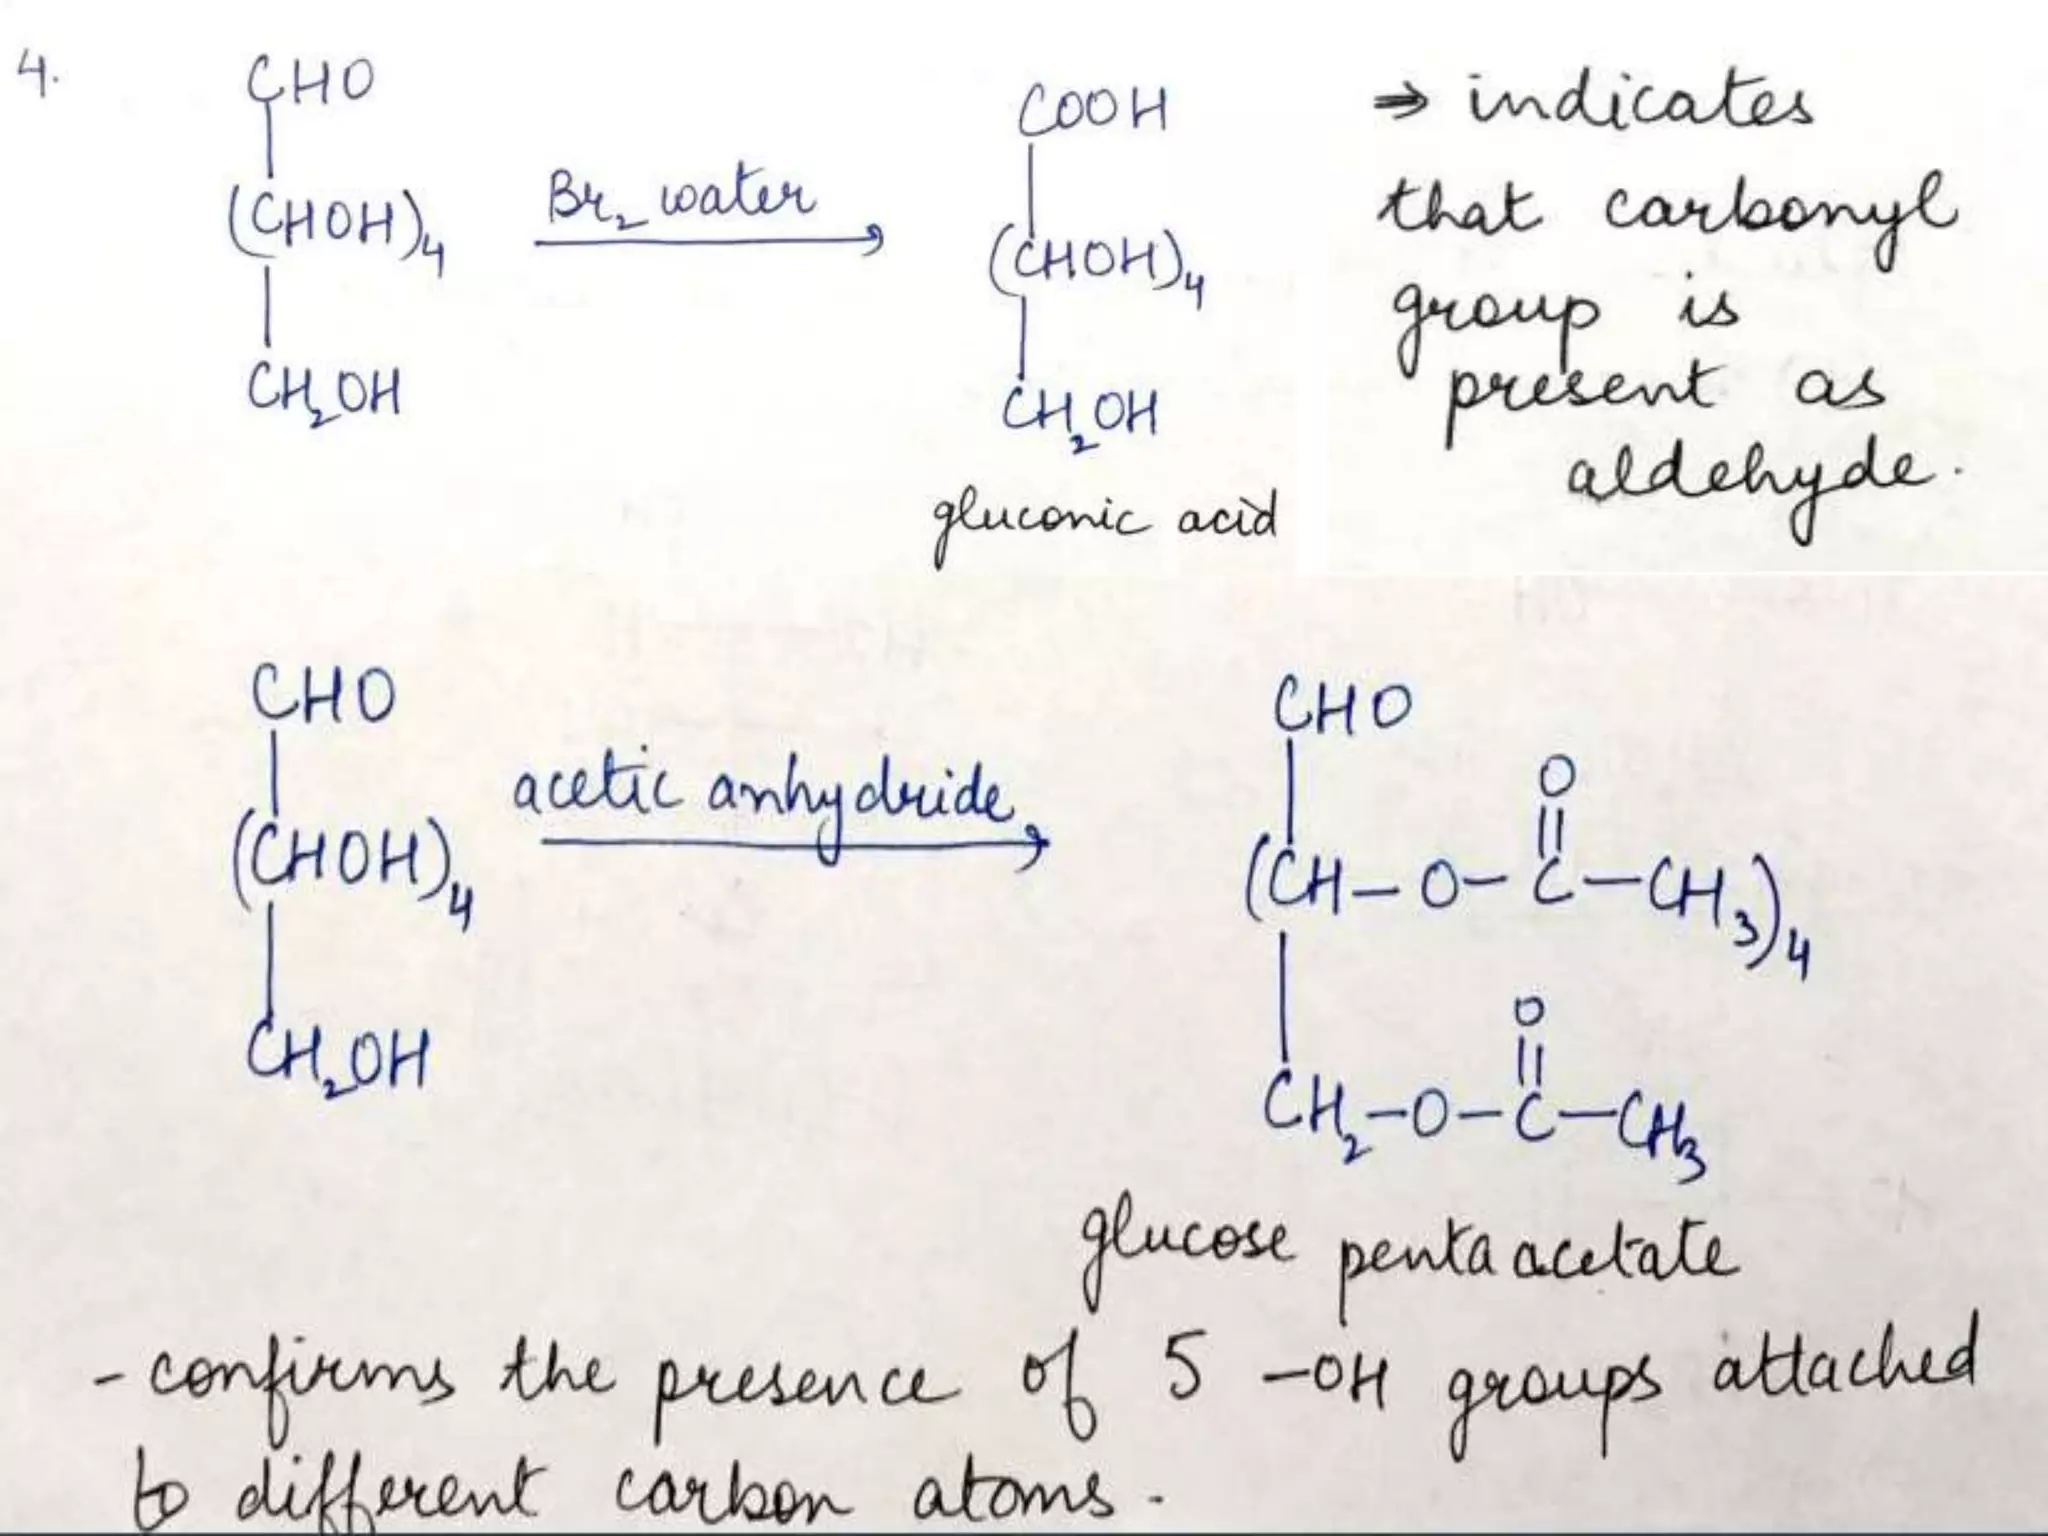 4.
CHO
(CHOH)4
CH2OH
Br2 water
COOH
(CHOH)4
CH2OH
gluconic acid
⇒ indicates
that carbonyl
group is
present as
aldehyde.
CHO
(CHOH)4
CH2OH
acetic anhydride
CHO
O
(CH-O-C-CH3)4
O
CH2-O-C-CH3
glucose pentaacetate
- confirms the presence of 5 -OH groups attached
to different carbon atoms.